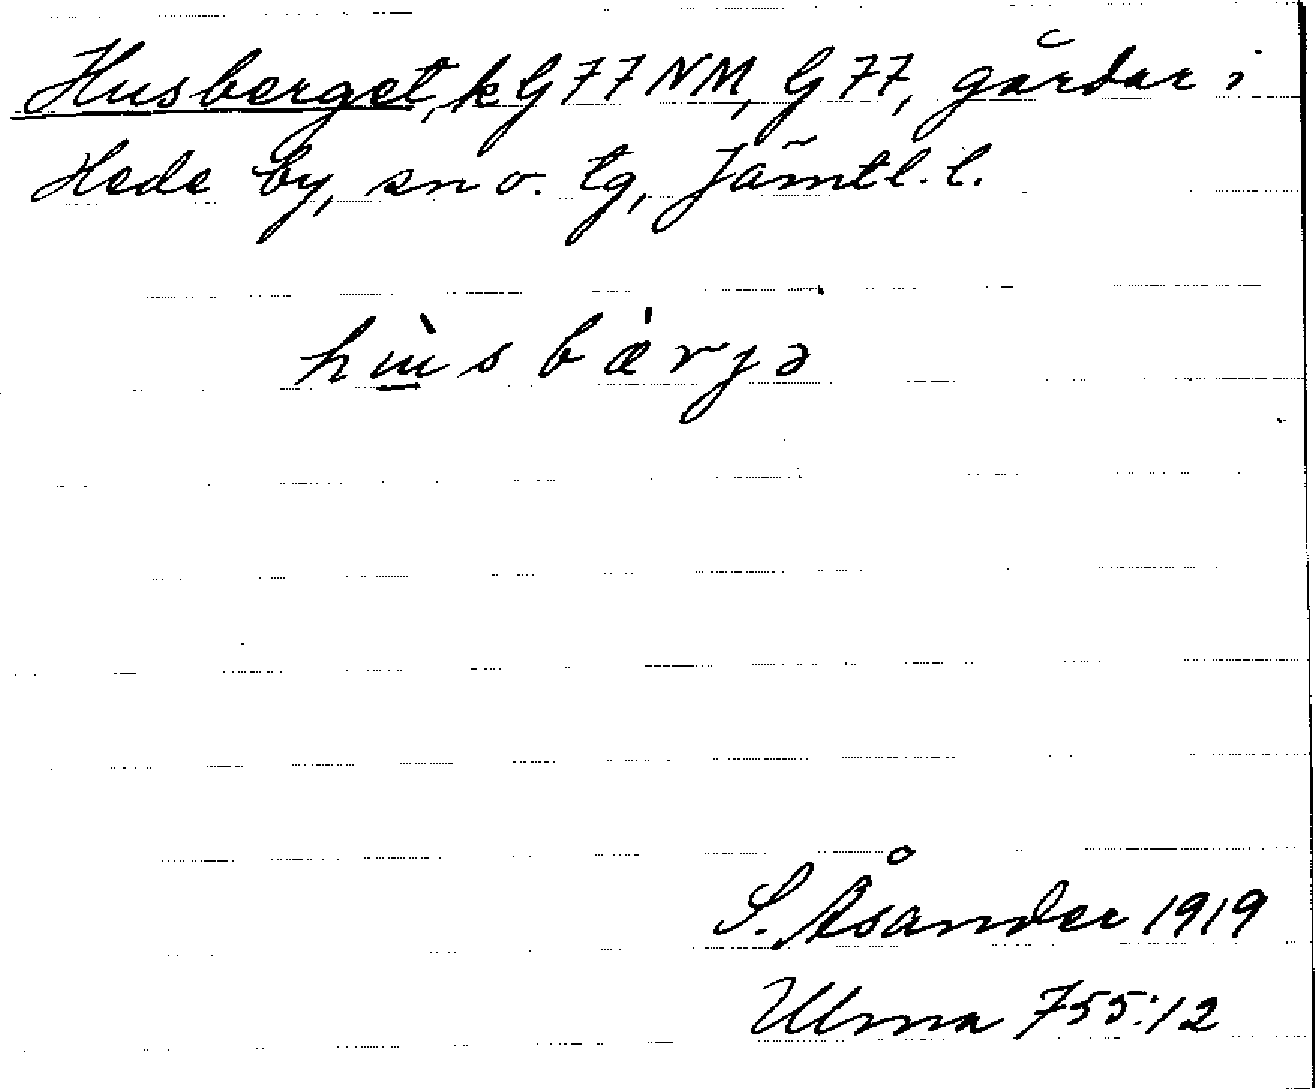 Husberget, kG77NM, G77, gårdar i
Hede by, sn o. tg, Jämtl. l.
hɯ̀sbæ̀rjə
S. Åsander 1919
Ulma 755:12